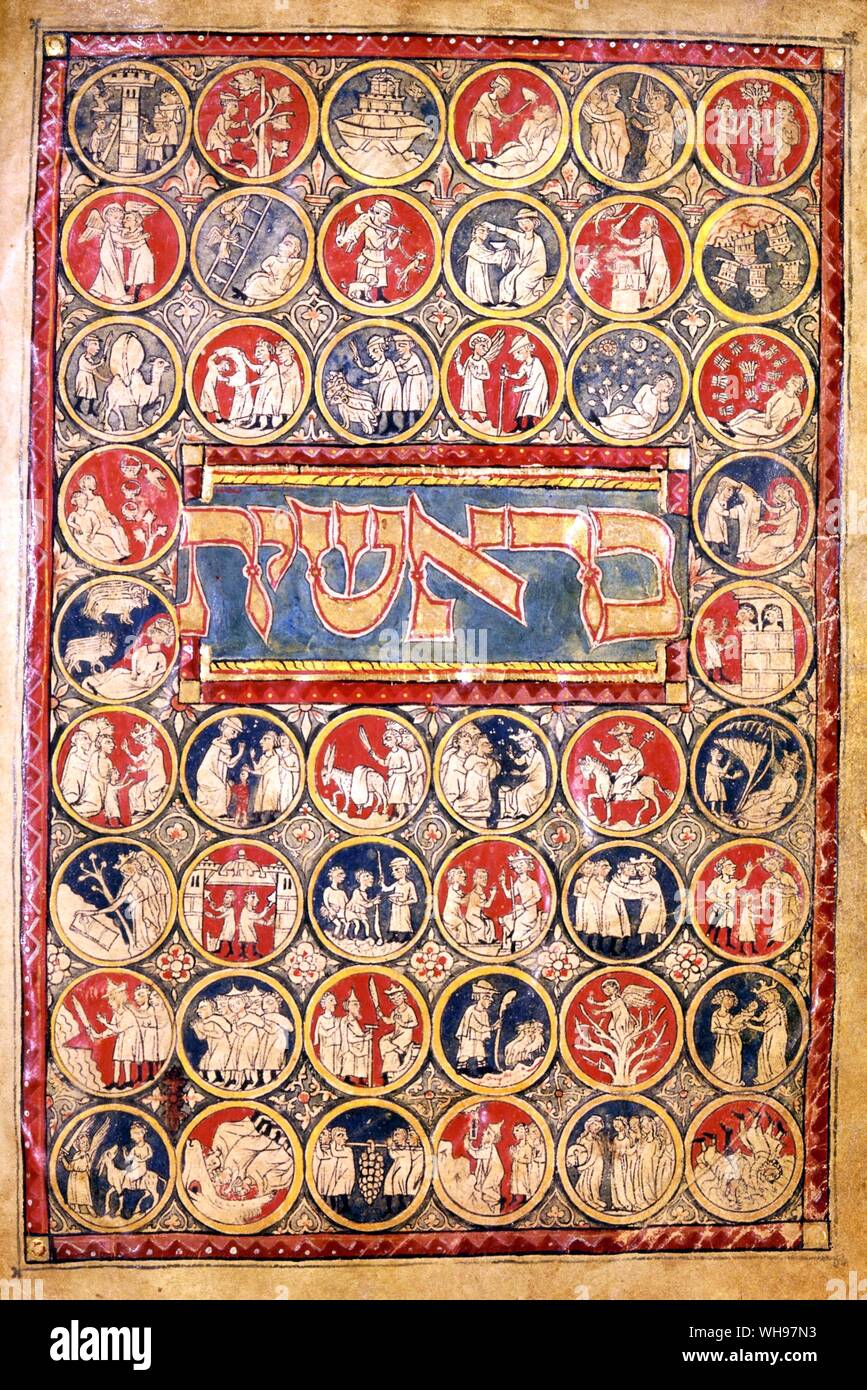 בראשית
alamy
Image ID: WH97N3
www.alamy.com